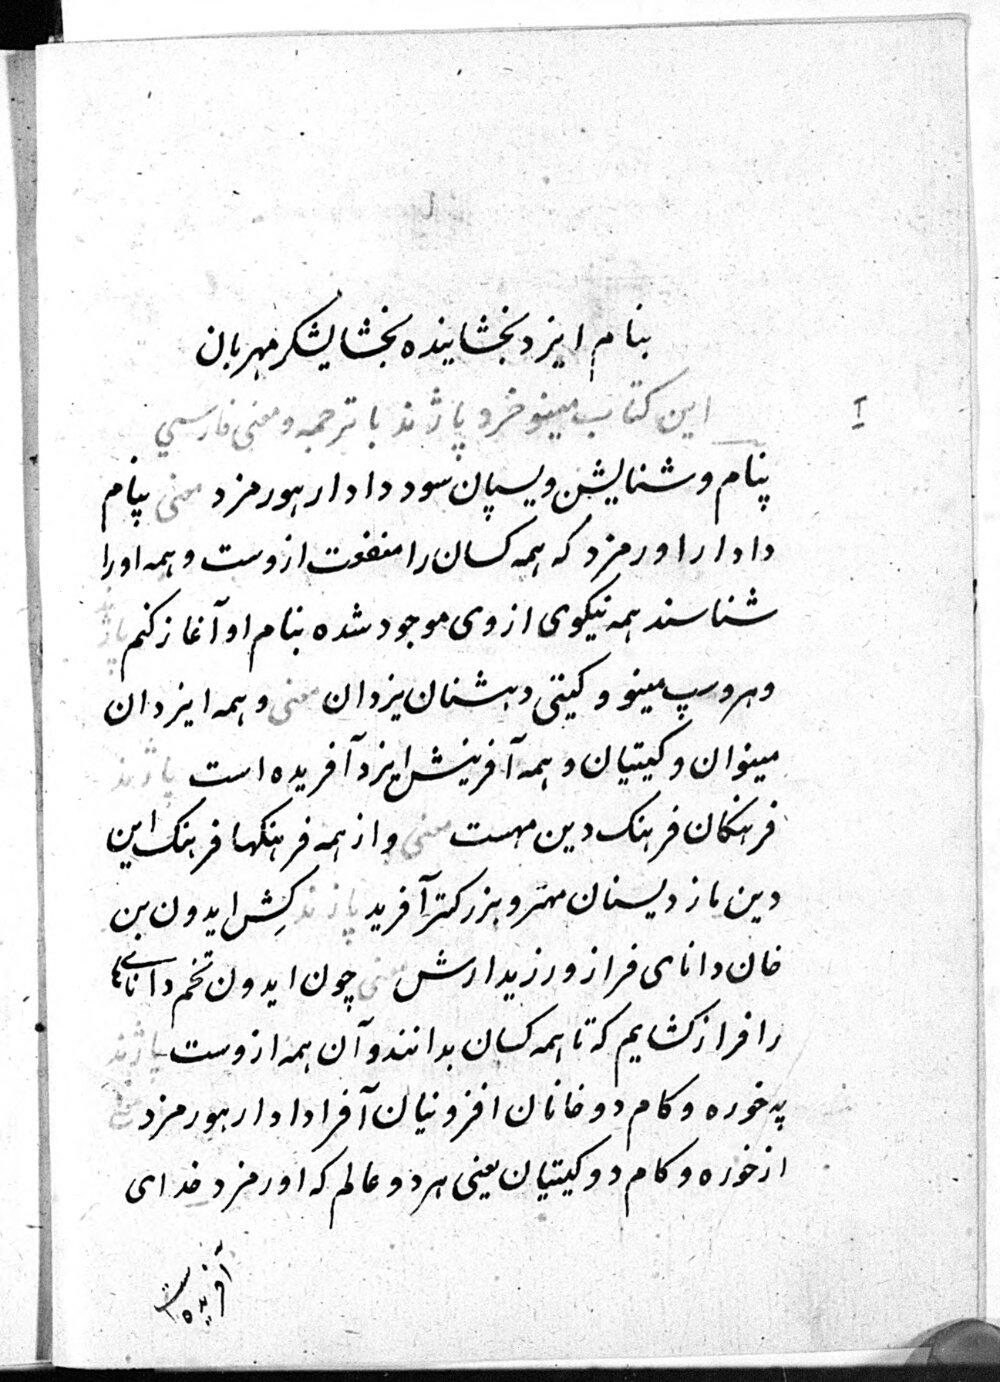 بنام ایزد بخشاینده بخشایشگر مهربان
این کتاب مینوخرد پاژند با ترجمه و معنی فارسی
پنام و شنایشن ویسپان سود دادار هورمزد معنی بنام
دادار اورمزد که همه کسان را منفعت ازوست و همه اورا
شناسند همه نیکوی ازوی موجود شده بنام او آغاز کنم پاژند
و هروسپ مینو و کیتی دهشنان یزدان معنی و همه ایزدان
مینوان و کیتیان و همه آفرینش ایزد آفریده است پاژند
فرهنکان فرهنک دین مهست معنی و از همه فرهنکها فرهنک این
دین مازدیسنان مهتر و بزرکتر آفرید پاژند کِش ایدون بن
خان دانای فراز ورزیدارش معنی چون ایدون تخم دانای
را فراز کشایم که تا همه کسان بدانند و آن همه ازوست پاژند
په خوره و کام دوخانان افزونیان آفرا دادار هورمزد معنی
از خوره و کام دو کیتیان یعنی هر دو عالم که اورمزد خدای
آفریده است